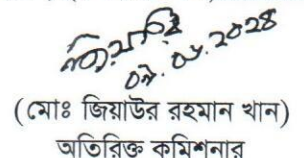 ০৯.০৬.২০২৪
(মোঃ জিয়াউর রহমান খান)
অতিরিক্ত কমিশনার